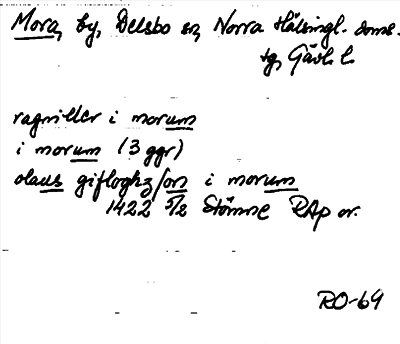 Mora, by, Delsbo sn, Norra Hälsingl. doms.
tg, Gävl. l.
ragniller i morum
i morum (3 ggr)
olaus gifloghz/on i morum
1422 5/2 Stömne RAp or.
RO-64